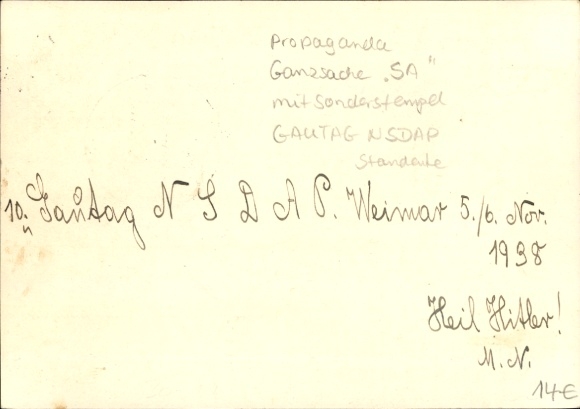 Propaganda
Ganzsache „SA"
mit Sonderstempel
GAUTAG NSDAP
Standarte
10. Gautag N S D A P. Weimar 5./6. Nov.
1938
Heil Hitler!
M. N.
14€